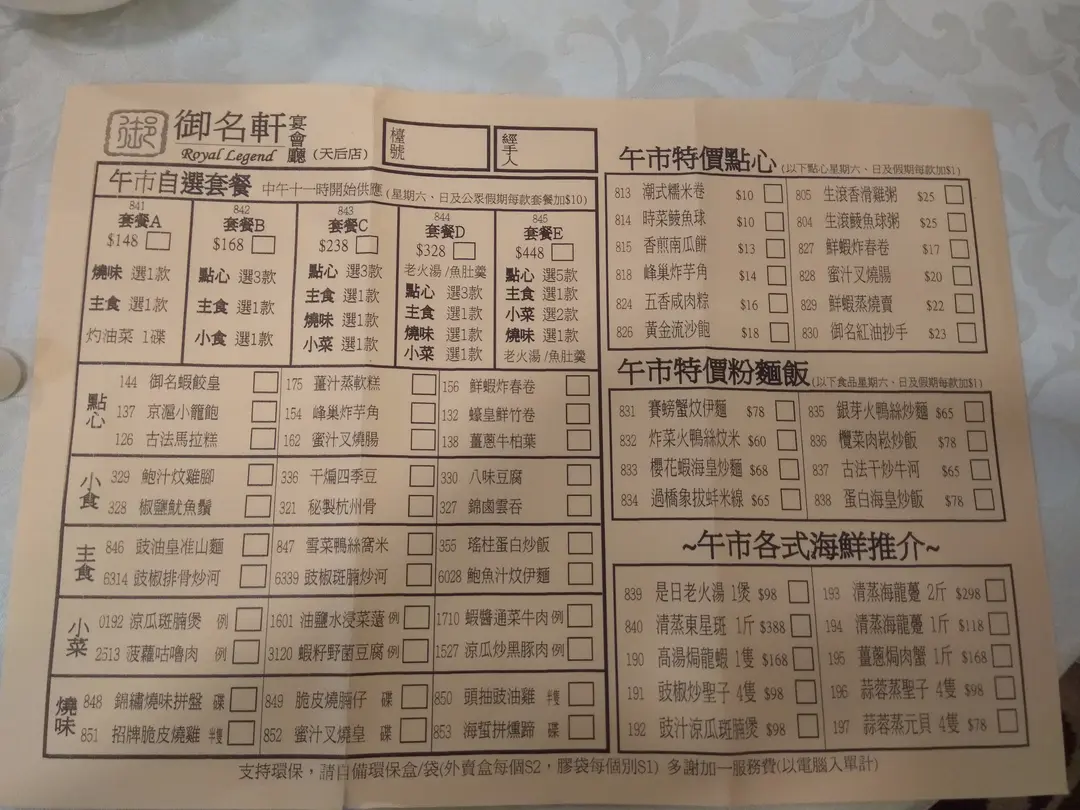 御 御名軒 宴會廳
Royal Legend (天后店)
檯號
經手人
午市自選套餐 中午十一時開始供應 (星期六、日及公眾假期每款套餐加$10)
841 套餐A $148
燒味 選1款
主食 選1款
灼油菜 1碟
842 套餐B $168
點心 選3款
主食 選1款
小食 選1款
843 套餐C $238
點心 選3款
主食 選1款
燒味 選1款
小菜 選1款
844 套餐D $328
老火湯/魚肚羹
點心 選3款
主食 選1款
燒味 選1款
小菜 選1款
845 套餐E $448
點心 選5款
主食 選1款
小菜 選2款
燒味 選1款
老火湯/魚肚羹
點心
144 御名蝦餃皇 175 薑汁蒸軟糕 156 鮮蝦炸春卷
137 京滬小籠飽 154 峰巢炸芋角 132 蠔皇鮮竹卷
126 古法馬拉糕 162 蜜汁叉燒腸 138 薑蔥牛柏葉
小食
329 鮑汁炆雞腳 336 干煸四季豆 330 八味豆腐
328 椒鹽魷魚鬚 321 秘製杭州骨 327 錦鹵雲吞
主食
846 豉油皇准山麵 847 雪菜鴨絲窩米 355 瑤柱蛋白炒飯
6314 豉椒排骨炒河 6339 豉椒斑腩炒河 6028 鮑魚汁炆伊麵
小菜
0192 涼瓜斑腩煲 例 1601 油鹽水浸菜薳 例 1710 蝦醬通菜牛肉 例
2513 菠蘿咕嚕肉 例 3120 蝦籽野菌豆腐 例 1527 涼瓜炒黑豚肉 例
燒味
848 錦繡燒味拼盤 碟 849 脆皮燒腩仔 碟 850 頭抽豉油雞 半隻
851 招牌脆皮燒雞 半隻 852 蜜汁叉燒皇 碟 853 海蜇拼燻蹄 碟
午市特價點心 (以下點心星期六、日及假期每款加$1)
813 潮式糯米卷 $10 805 生滾香滑雞粥 $25
814 時菜鯪魚球 $10 804 生滾鯪魚球粥 $25
815 香煎南瓜餅 $13 827 鮮蝦炸春卷 $17
818 峰巢炸芋角 $14 828 蜜汁叉燒腸 $20
824 五香咸肉粽 $16 829 鮮蝦蒸燒賣 $22
826 黃金流沙飽 $18 830 御名紅油抄手 $23
午市特價粉麵飯 (以下食品星期六、日及假期每款加$1)
831 賽螃蟹炆伊麵 $78 835 銀芽火鴨絲炒麵 $65
832 炸菜火鴨絲炆米 $60 836 欖菜肉崧炒飯 $78
833 櫻花蝦海皇炒麵 $68 837 古法干炒牛河 $65
834 過橋象拔蚌米線 $65 838 蛋白海皇炒飯 $78
~午市各式海鮮推介~
839 是日老火湯 1煲 $98 193 清蒸海龍躉 2斤 $298
840 清蒸東星斑 1斤 $388 194 清蒸海龍躉 1斤 $118
190 高湯焗龍蝦 1隻 $168 195 薑蔥焗肉蟹 1斤 $168
191 豉椒炒聖子 4隻 $98 196 蒜蓉蒸聖子 4隻 $98
192 豉汁涼瓜斑腩煲 $98 197 蒜蓉蒸元貝 4隻 $78
支持環保，請自備環保盒/袋(外賣盒每個$2，膠袋每個別$1) 多謝加一服務費(以電腦入單計)